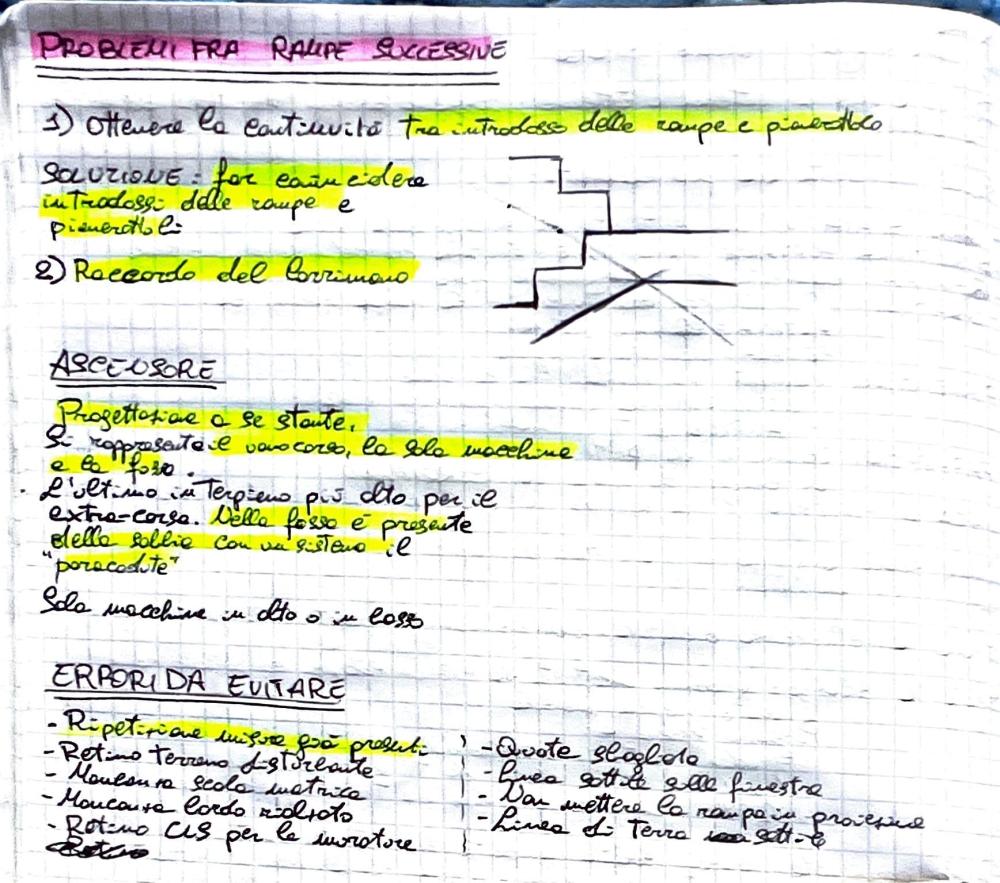 PROBLEMI FRA RAMPE SUCCESSIVE
1) Ottenere la continuità tra intradosso delle rampe e pianerottolo
SOLUZIONE: far coincidere
intradossi delle rampe e
pianerottoli
2) Raccordo del Corrimano
ASCENSORE
Progettazione a se stante.
Si rappresenta il vano corsa, la sala macchine
e la "fossa".
L'ultimo interpiano più alto per il
extra-corsa. Nella fossa è presente
della sabbia con un sistema il
"paracadute"
Sala macchine in alto o in basso
ERRORI DA EVITARE
- Ripetizione misure già presenti
- Retino terreno disturbante
- Mancanza scala metrica
- Mancanza bordo rialzato
- Retino CLS per le murature
- Quote sbagliate
- Linea sottile sulle finestre
- Non mettere la rampa in proiezione
- Linea di terra sottile